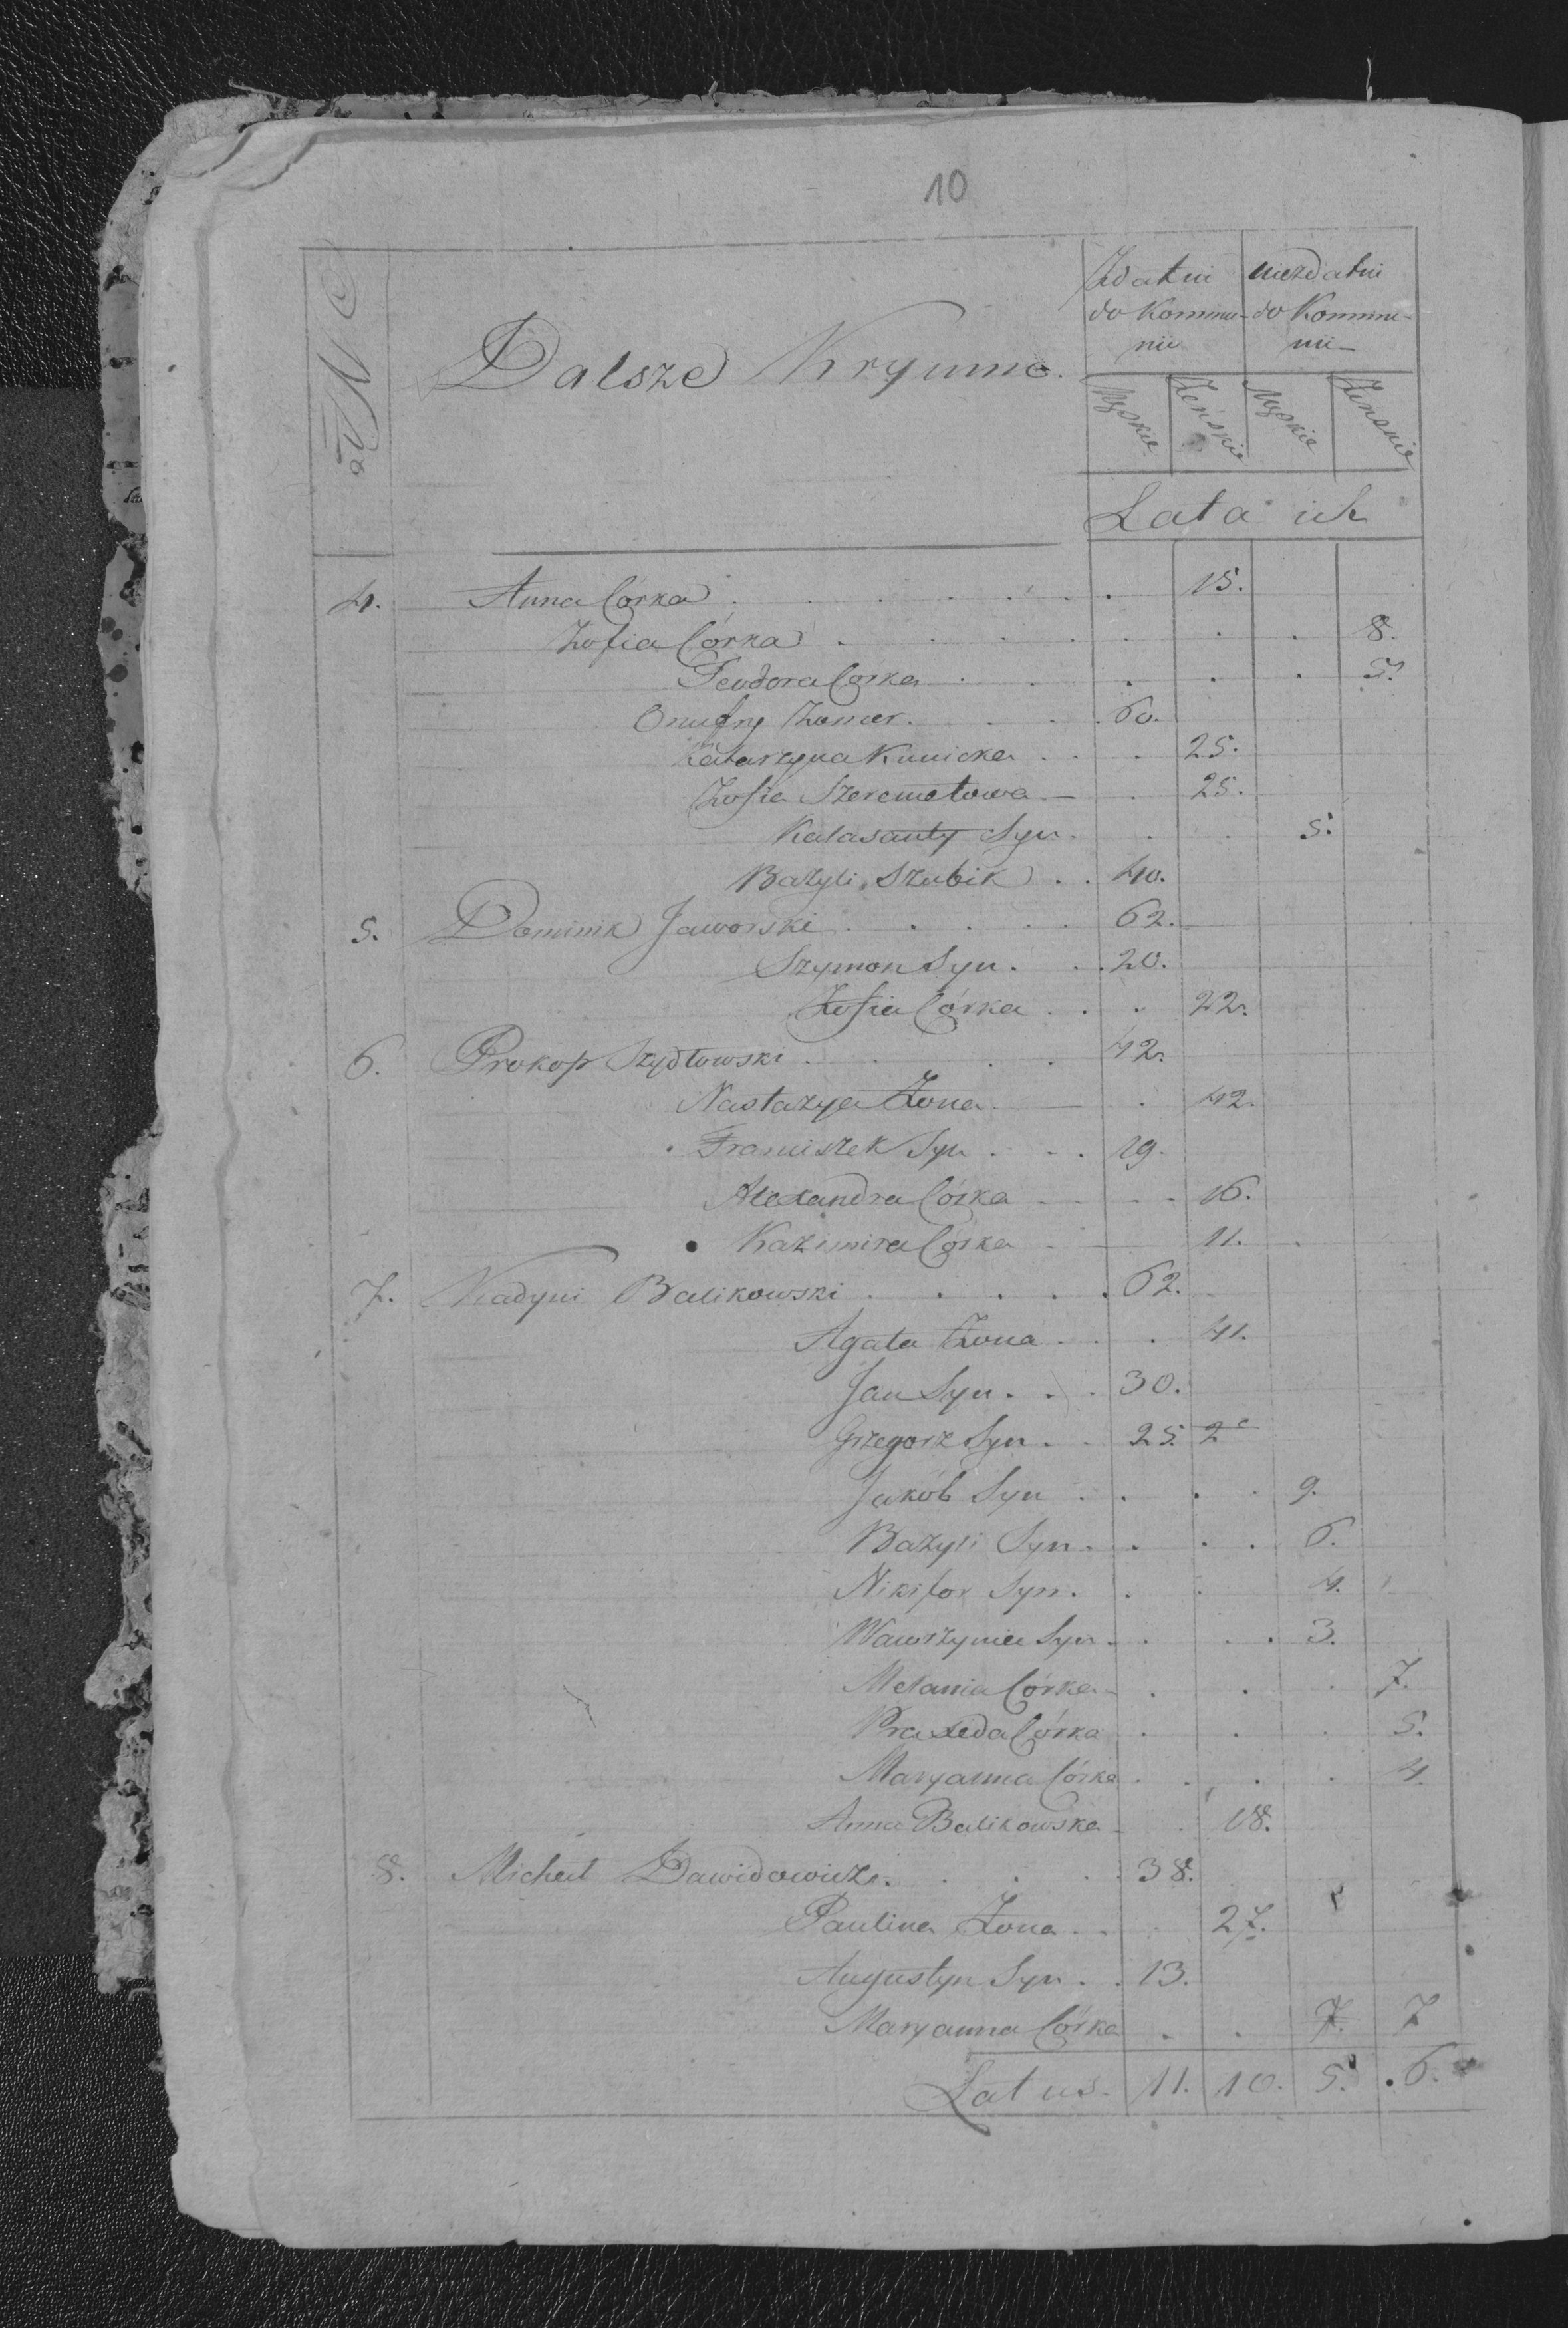 10
Dalsze Krynne.
Zdatni do Kommunii
niezdatni do Kommunii
Męskie Żeńskie Męskie Żeńskie
Lata ich
4. Anna Córka 15.
Zofia Córka 8.
Teodora Córka 5.
Onufry 60.
Katarzyna Kunicka 25.
Zofia Szeremetowa 25.
Kalasanty Syn 5.
Bazyli Szubik 40.
5. Dominik Jaworski 62.
Szymon Syn 20.
Zofia Córka 22.
6. Prokop Szydłowski 42.
Nastazya Żona 42.
Franciszek Syn 19.
Alexandra Córka 16.
Kazimira Córka 11.
7. Balikowski 62.
Agata Żona 41.
Jan Syn 30.
Grzegorz Syn 25. 2
Jakób Syn 9.
Bazyli Syn 6.
Nikifor Syn 4.
Wawrzyniec Syn 3.
Melania Córka 7.
Praxeda Córka 5.
Maryanna Córka 4.
Anna Balikowska 18.
8. Michał Dawidowicz 38.
Paulina Żona 27.
Augustyn Syn 13.
Maryanna Córka 7. 7
Latus. 11. 10. 5. 6.